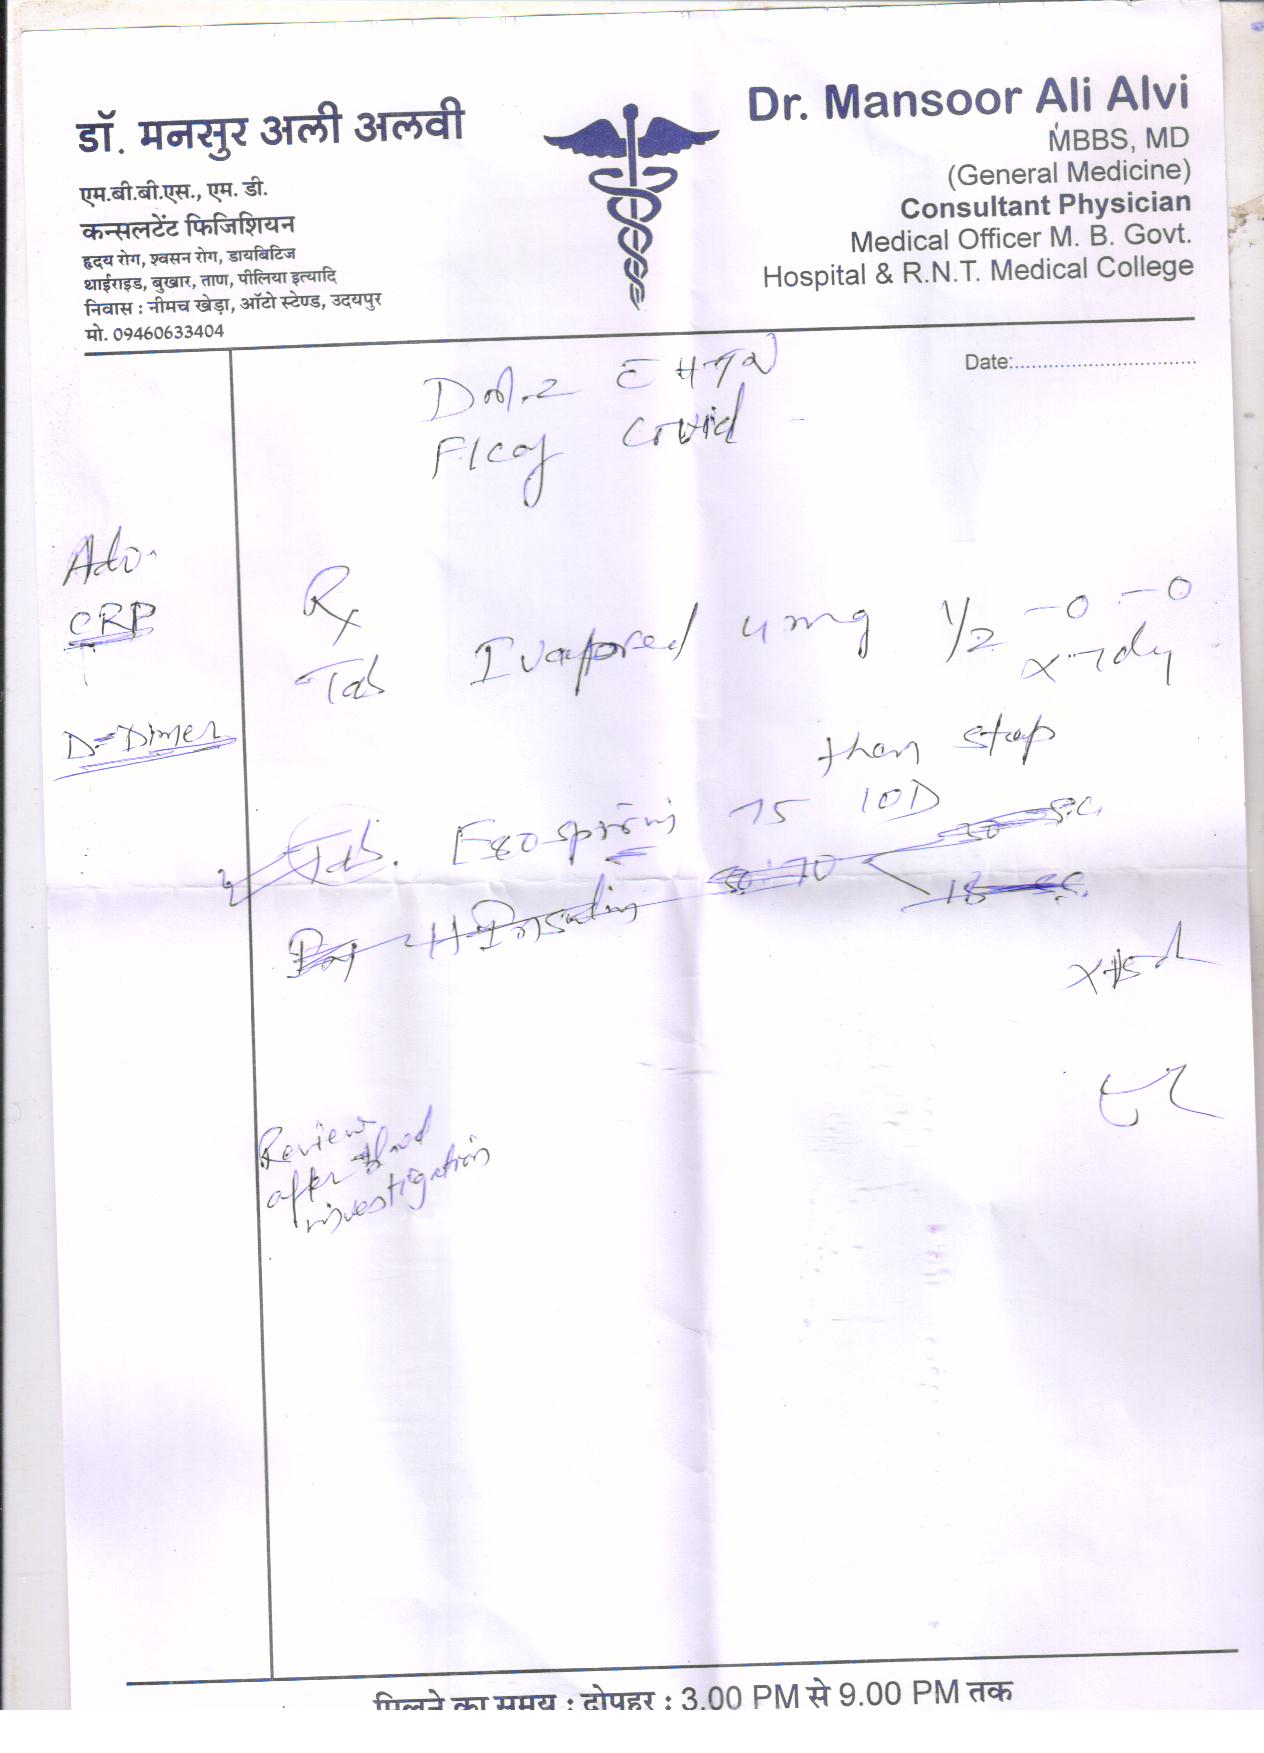 डॉ. मनसुर अली अलवी
एम.बी.बी.एस., एम. डी.
कन्सलटेंट फिजिशियन
हृदय रोग, श्वसन रोग, डायबिटिज
थाईराइड, बुखार, ताण, पीलिया इत्यादि
निवास : नीमच खेड़ा, ऑटो स्टेण्ड, उदयपुर
मो. 09460633404
Dr. Mansoor Ali Alvi
MBBS, MD
(General Medicine)
Consultant Physician
Medical Officer M. B. Govt.
Hospital & R.N.T. Medical College
Date:
DM.2 c HTN
F/c of Covid
Adv.
CRP
D-Dimer
Rx
Tab 4 mg 1/2 -0 -0
x 7 day
then stop
Tab. Ecosprin 75 10D
30 S.C.
H Insulin 30:70
18 S.C.
Review
after blood
investigation
मिलने का समय : दोपहर : 3.00 PM से 9.00 PM तक